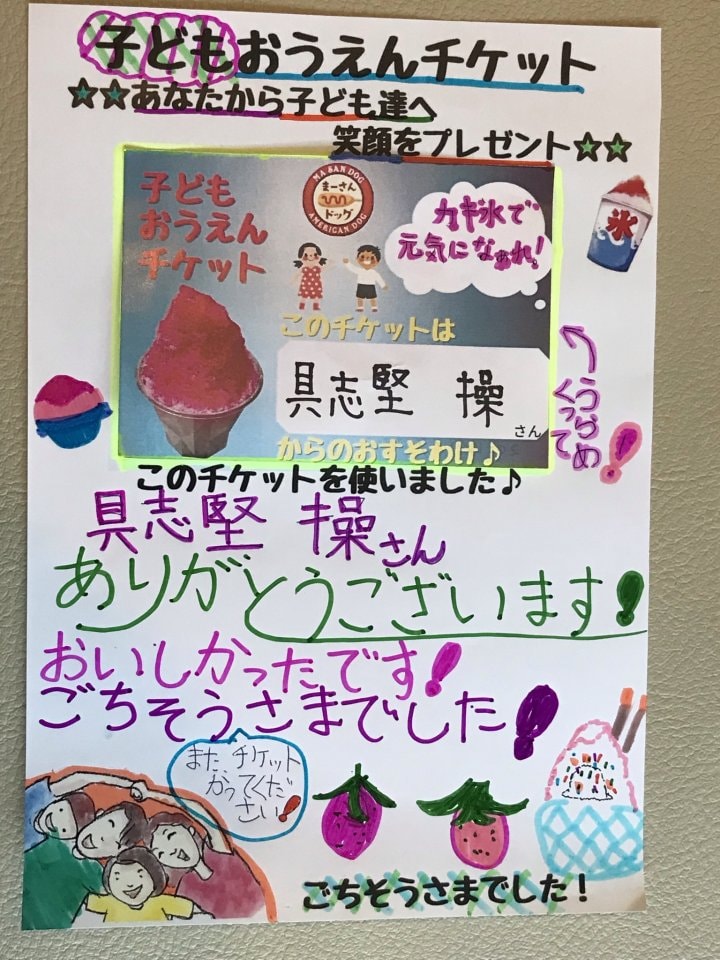 子どもおうえんチケット
☆☆あなたから子ども達へ
笑顔をプレゼント☆☆
子ども
おうえん
チケット
MASAN DOG
まーさん
ドッグ
AMERICAN DOG
カキ氷で
元気になぁれ!
氷
このチケットは
具志堅 操
さん
からのおすそわけ♪
うらめ
くって!
このチケットを使いました♪
具志堅 操さん
ありがとうございます!
おいしかったです!
ごちそうさまでした!
また チケット
かってくだ
さい!
ごちそうさまでした!